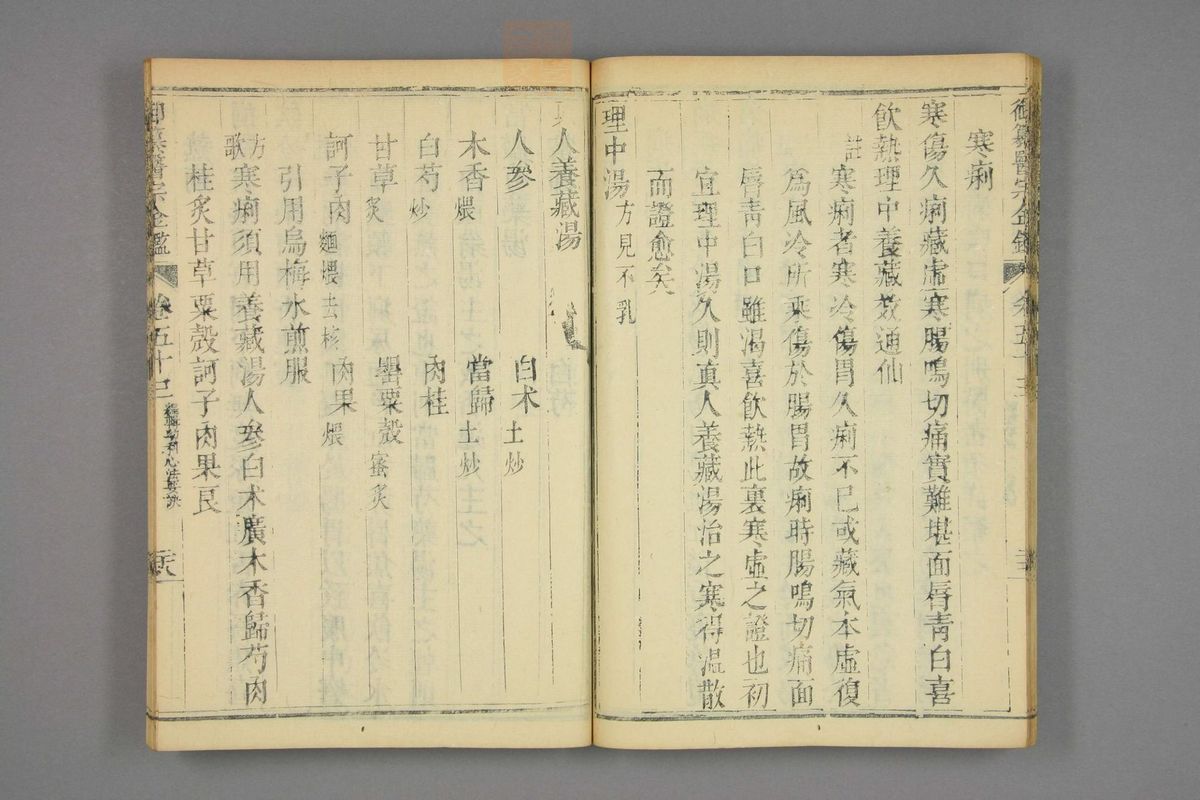 御纂醫宗金鑑 卷五十三
寒痢
寒傷久痢藏虛寒腸鳴切痛實難堪面唇青白喜
飲熱理中養藏效通仙
註
寒痢者寒冷傷胃久痢不已或藏氣本虛復
為風冷所乘傷於腸胃故痢時腸鳴切痛面
唇青白口雖渴喜飲熱此裏寒虛之證也初
宜理中湯久則真人養藏湯治之寒得温散
而證愈矣
理中湯 方見不乳
人養藏湯
人參 白朮土炒
木香煨 當歸土炒
白芍炒 肉桂
甘草炙 罌粟殼蜜炙
訶子肉麵煨去核 肉果煨
引用烏梅水煎服
方歌
寒痢須用養藏湯人參白朮廣木香歸芍肉
桂炙甘草粟殼訶子肉果良
御纂醫宗金鑑 卷五十三 幼科心法要訣